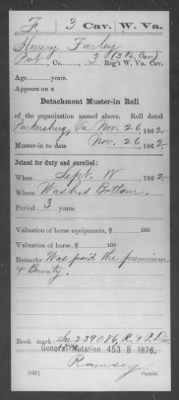 F. 3 Cav. W. Va.
Henry Farley
Pvt., Co. 3 (3 Va. Cav.) Reg't W. Va. Cav.
Age years.
Appears on a
Detachment Muster-in Roll
of the organization named above. Roll dated
Parkersburg, Va. Nov. 26, 1862
Muster-in to date Nov. 26, 1862
Joined for duty and enrolled:
When Sept. 18, 1862
Where Washes Bottom.
Period 3 years.
Valuation of horse equipments, $ .100
Valuation of horse $ .100
Remarks Was paid the premium
& Bounty.
Book mark: 239086, R. & P.
General Notation 453 B 1876.
Ramsey
Copyist.